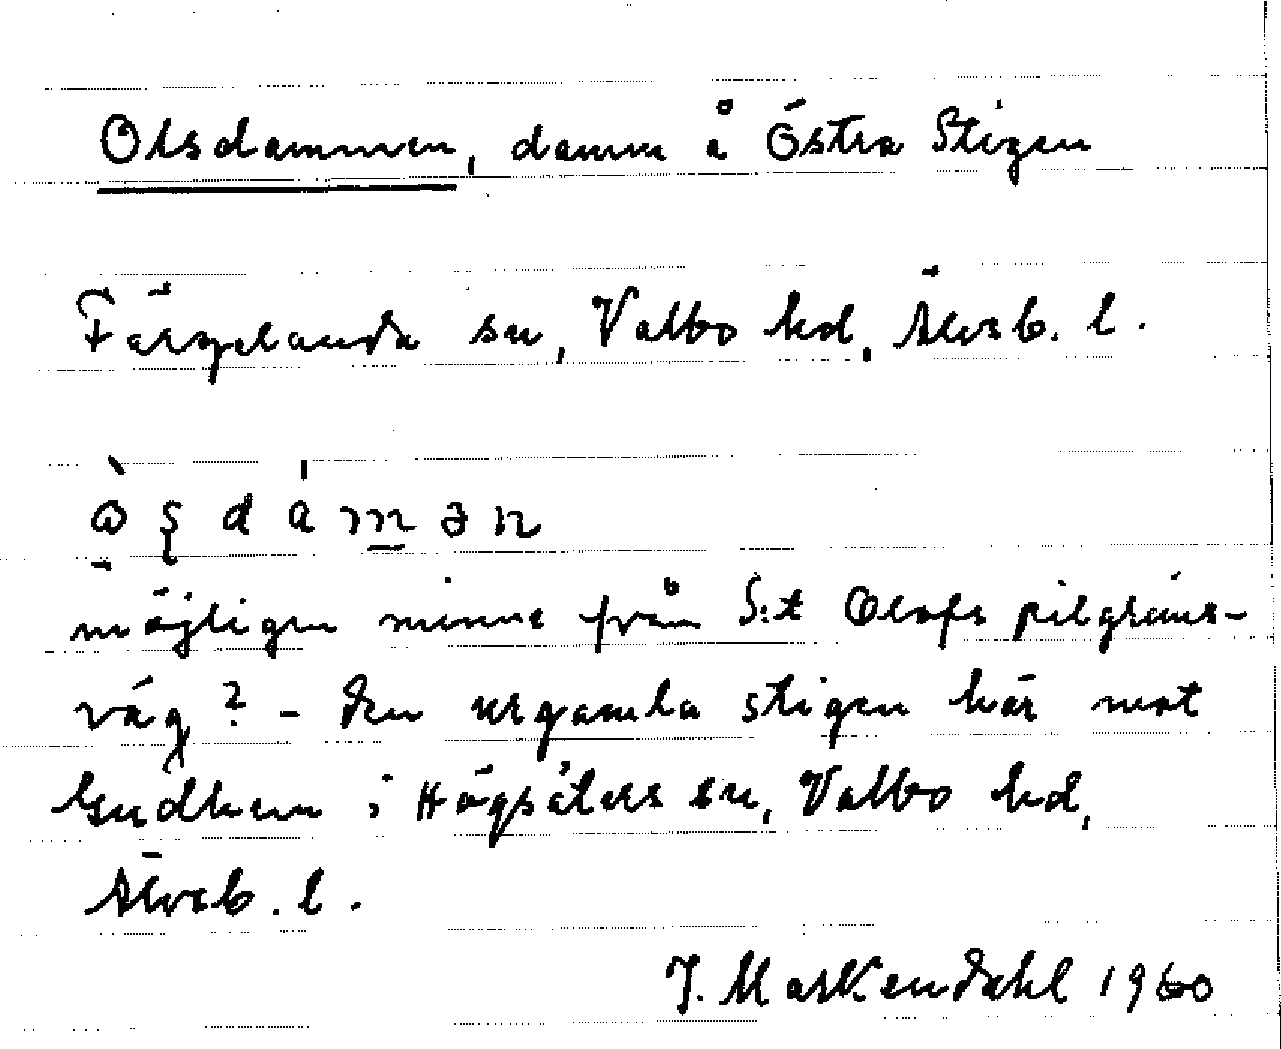 Olsdammen, damm å Östra Stigen
Färgelanda sn, Valbo hd, Älvsb. l.
möjligen minne från S:t Olofs pilgrims-
väg? - Den urgamla stigen här mot
Gudhem i Högsäters sn, Valbo hd,
Älvsb. l.
J. Markendahl 1960